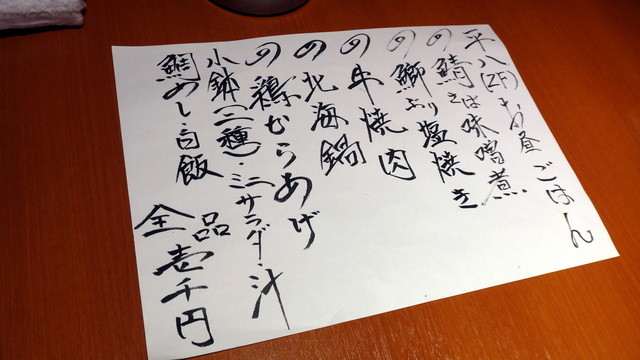 平八(2F)お昼ごはん
の鯖さば味噌煮
の鰤ぶり塩焼き
の牛焼肉
の北海鍋
の鶏からあげ
小鉢(二種)・ミニサラダ・汁
鯛めし・白飯
全品壱千円